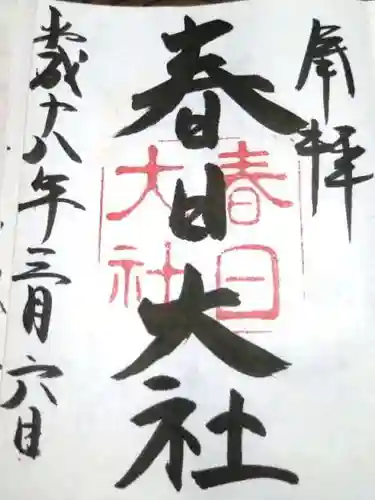 奉拝
春日大社
春日
大社
平成十八年三月六日